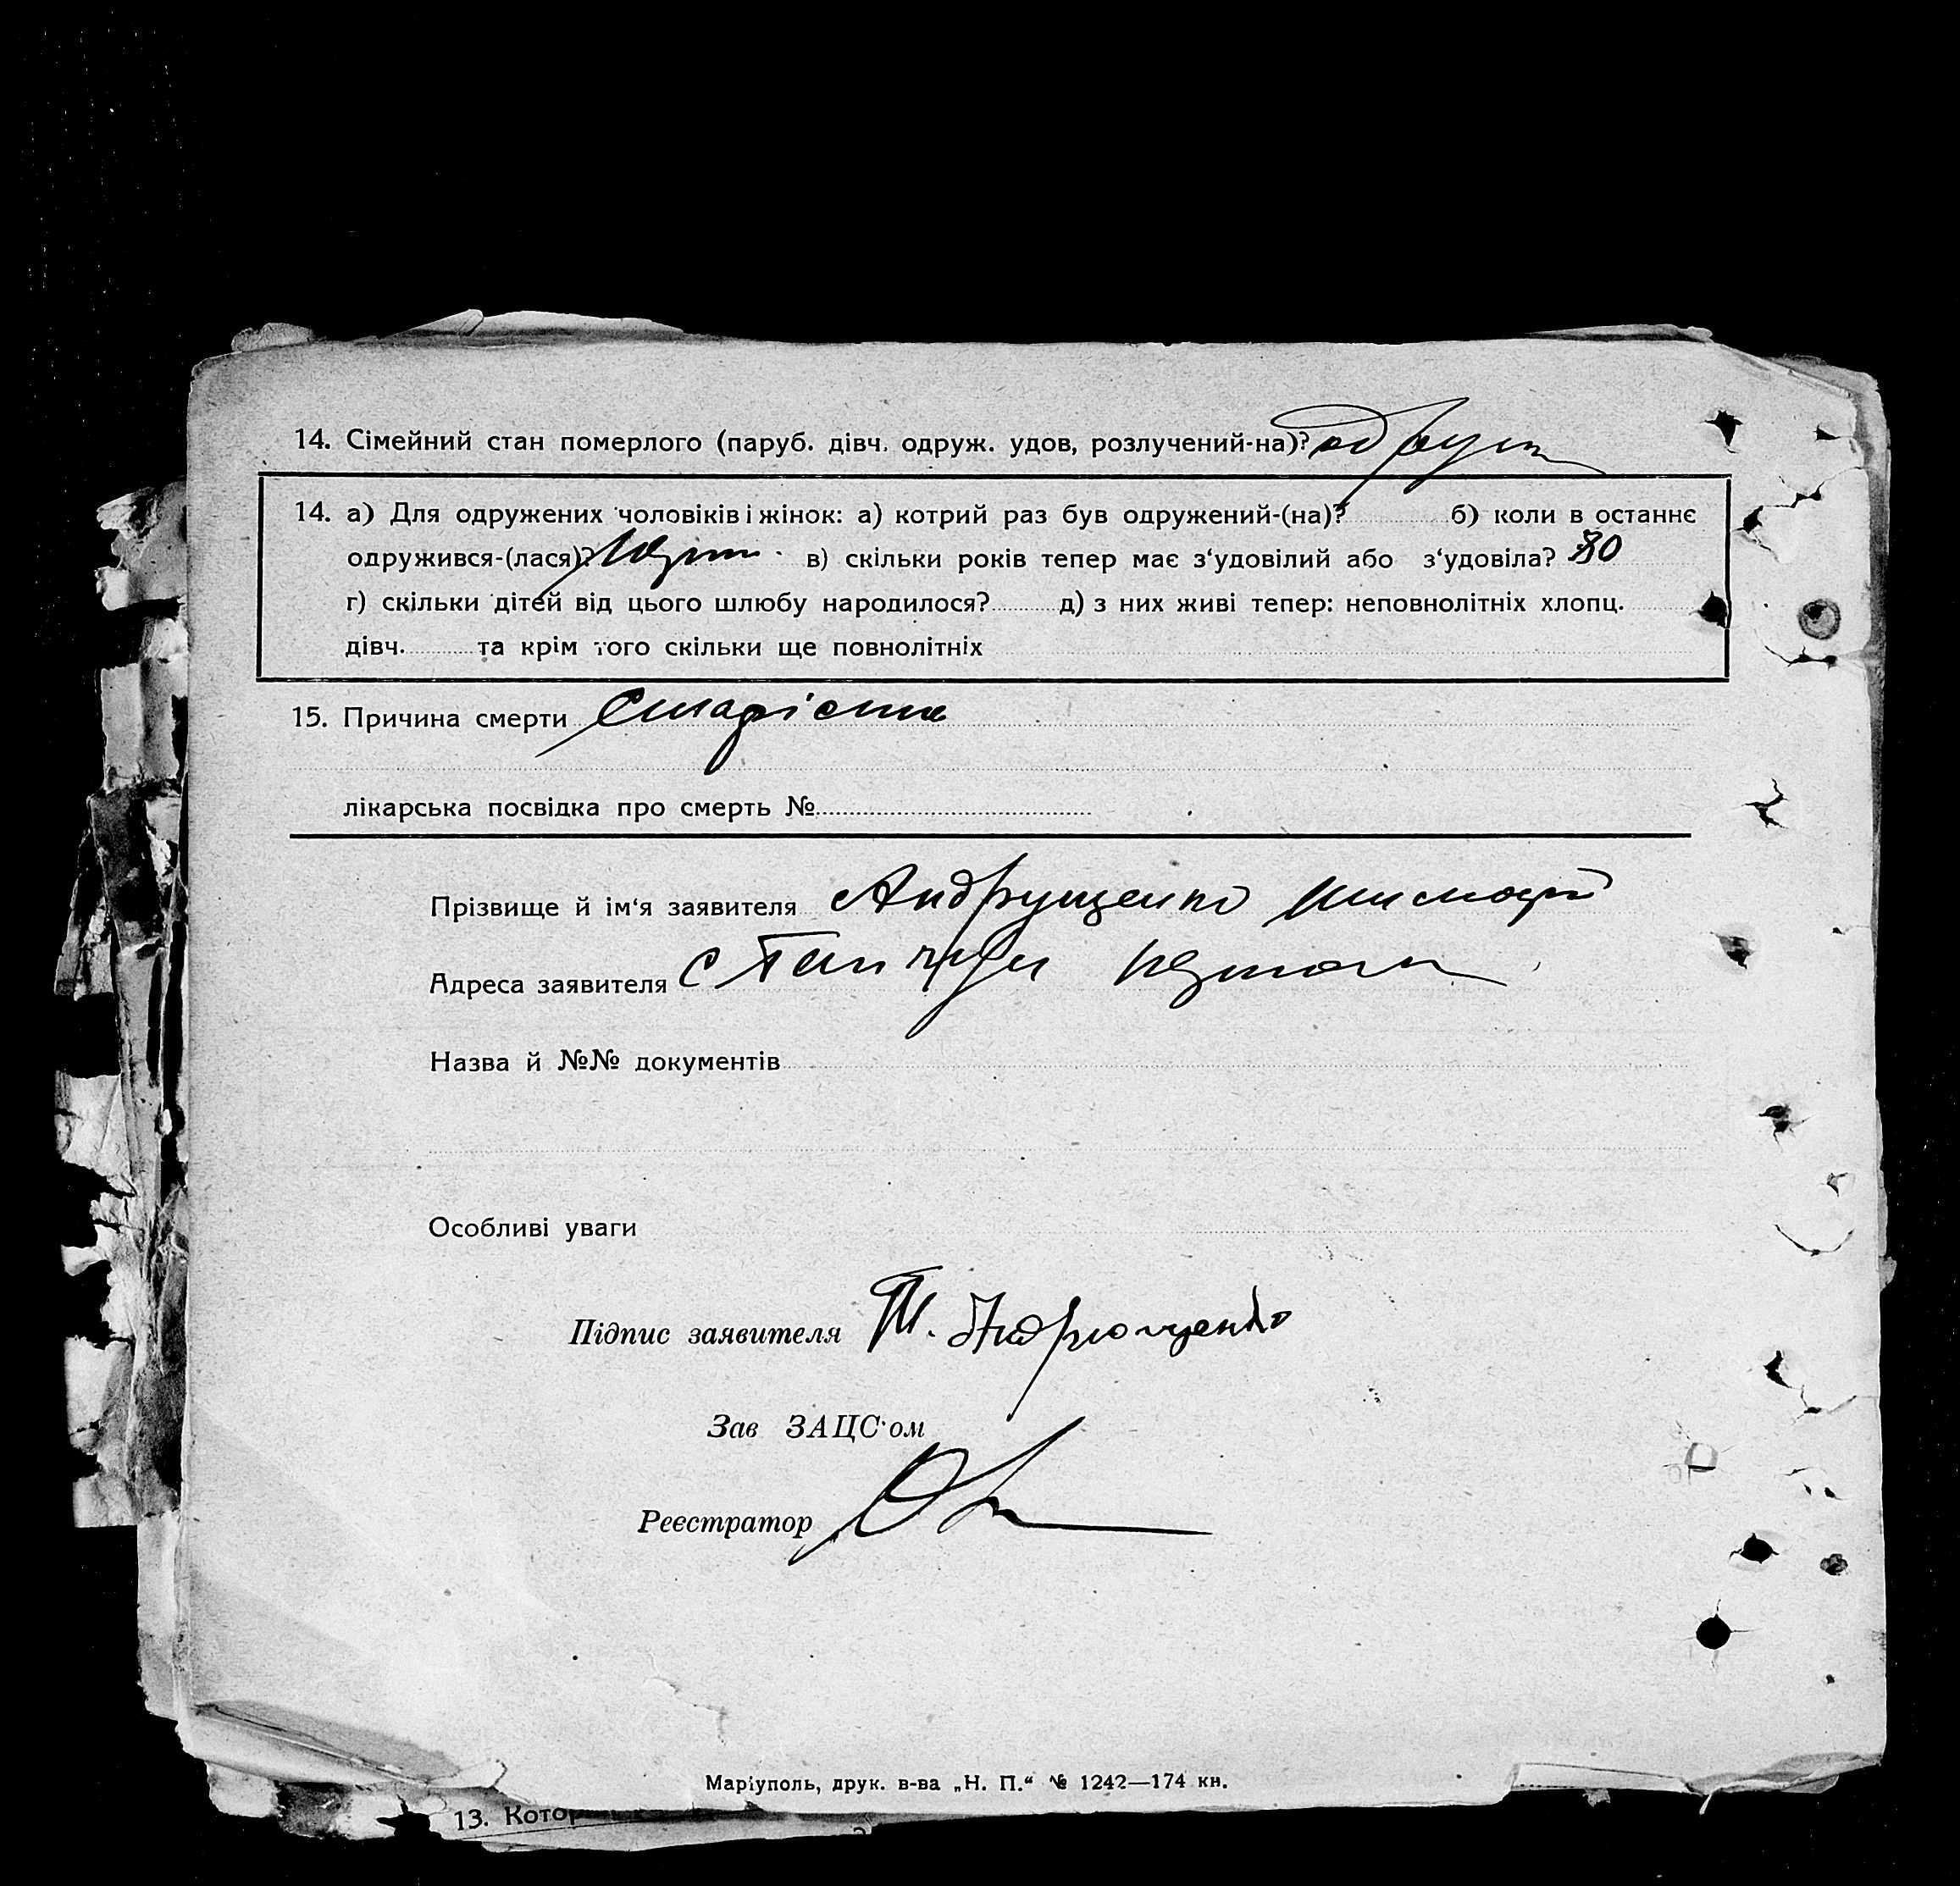 14. Сімейний стан померлого (паруб. дівч. одруж. удов, розлучений-на)? одруж
14. а) Для одружених чоловіків і жінок: а) котрий раз був одружений-(на)? б) коли в останнє
одружився-(лася)? в) скільки років тепер має з‘удовілий або з‘удовіла? 80
г) скільки дітей від цього шлюбу народилося? д) з них живі тепер: неповнолітніх хлопц.
дівч. та крім того скільки ще повнолітніх
15. Причина смерти Старість
лікарська посвідка про смерть №
Прізвище й ім‘я заявителя Андрущенко Тимофій
Адреса заявителя
Назва й №№ документів
Особливі уваги
Підпис заявителя Т. Андрющенко
Зав ЗАЦС‘ом
Реєстратор
Маріуполь, друк. в-ва „Н. П.“ № 1242—174 кн.
13. Котор